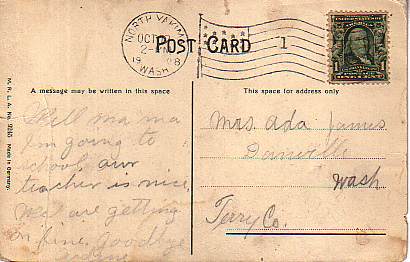 NORTH YAKIMA
OCT
2-
19 08
WASH
POST CARD
1
1
A message may be written in this space
This space for address only
M. R. L. A. No. 9265 Made in Germany.
Well ma ma
I'm going to
school, our
teacher is nice,
we are getting
on fine. Goodbye
Mrs. Ada James
Danville
Wash
Ferry Co.